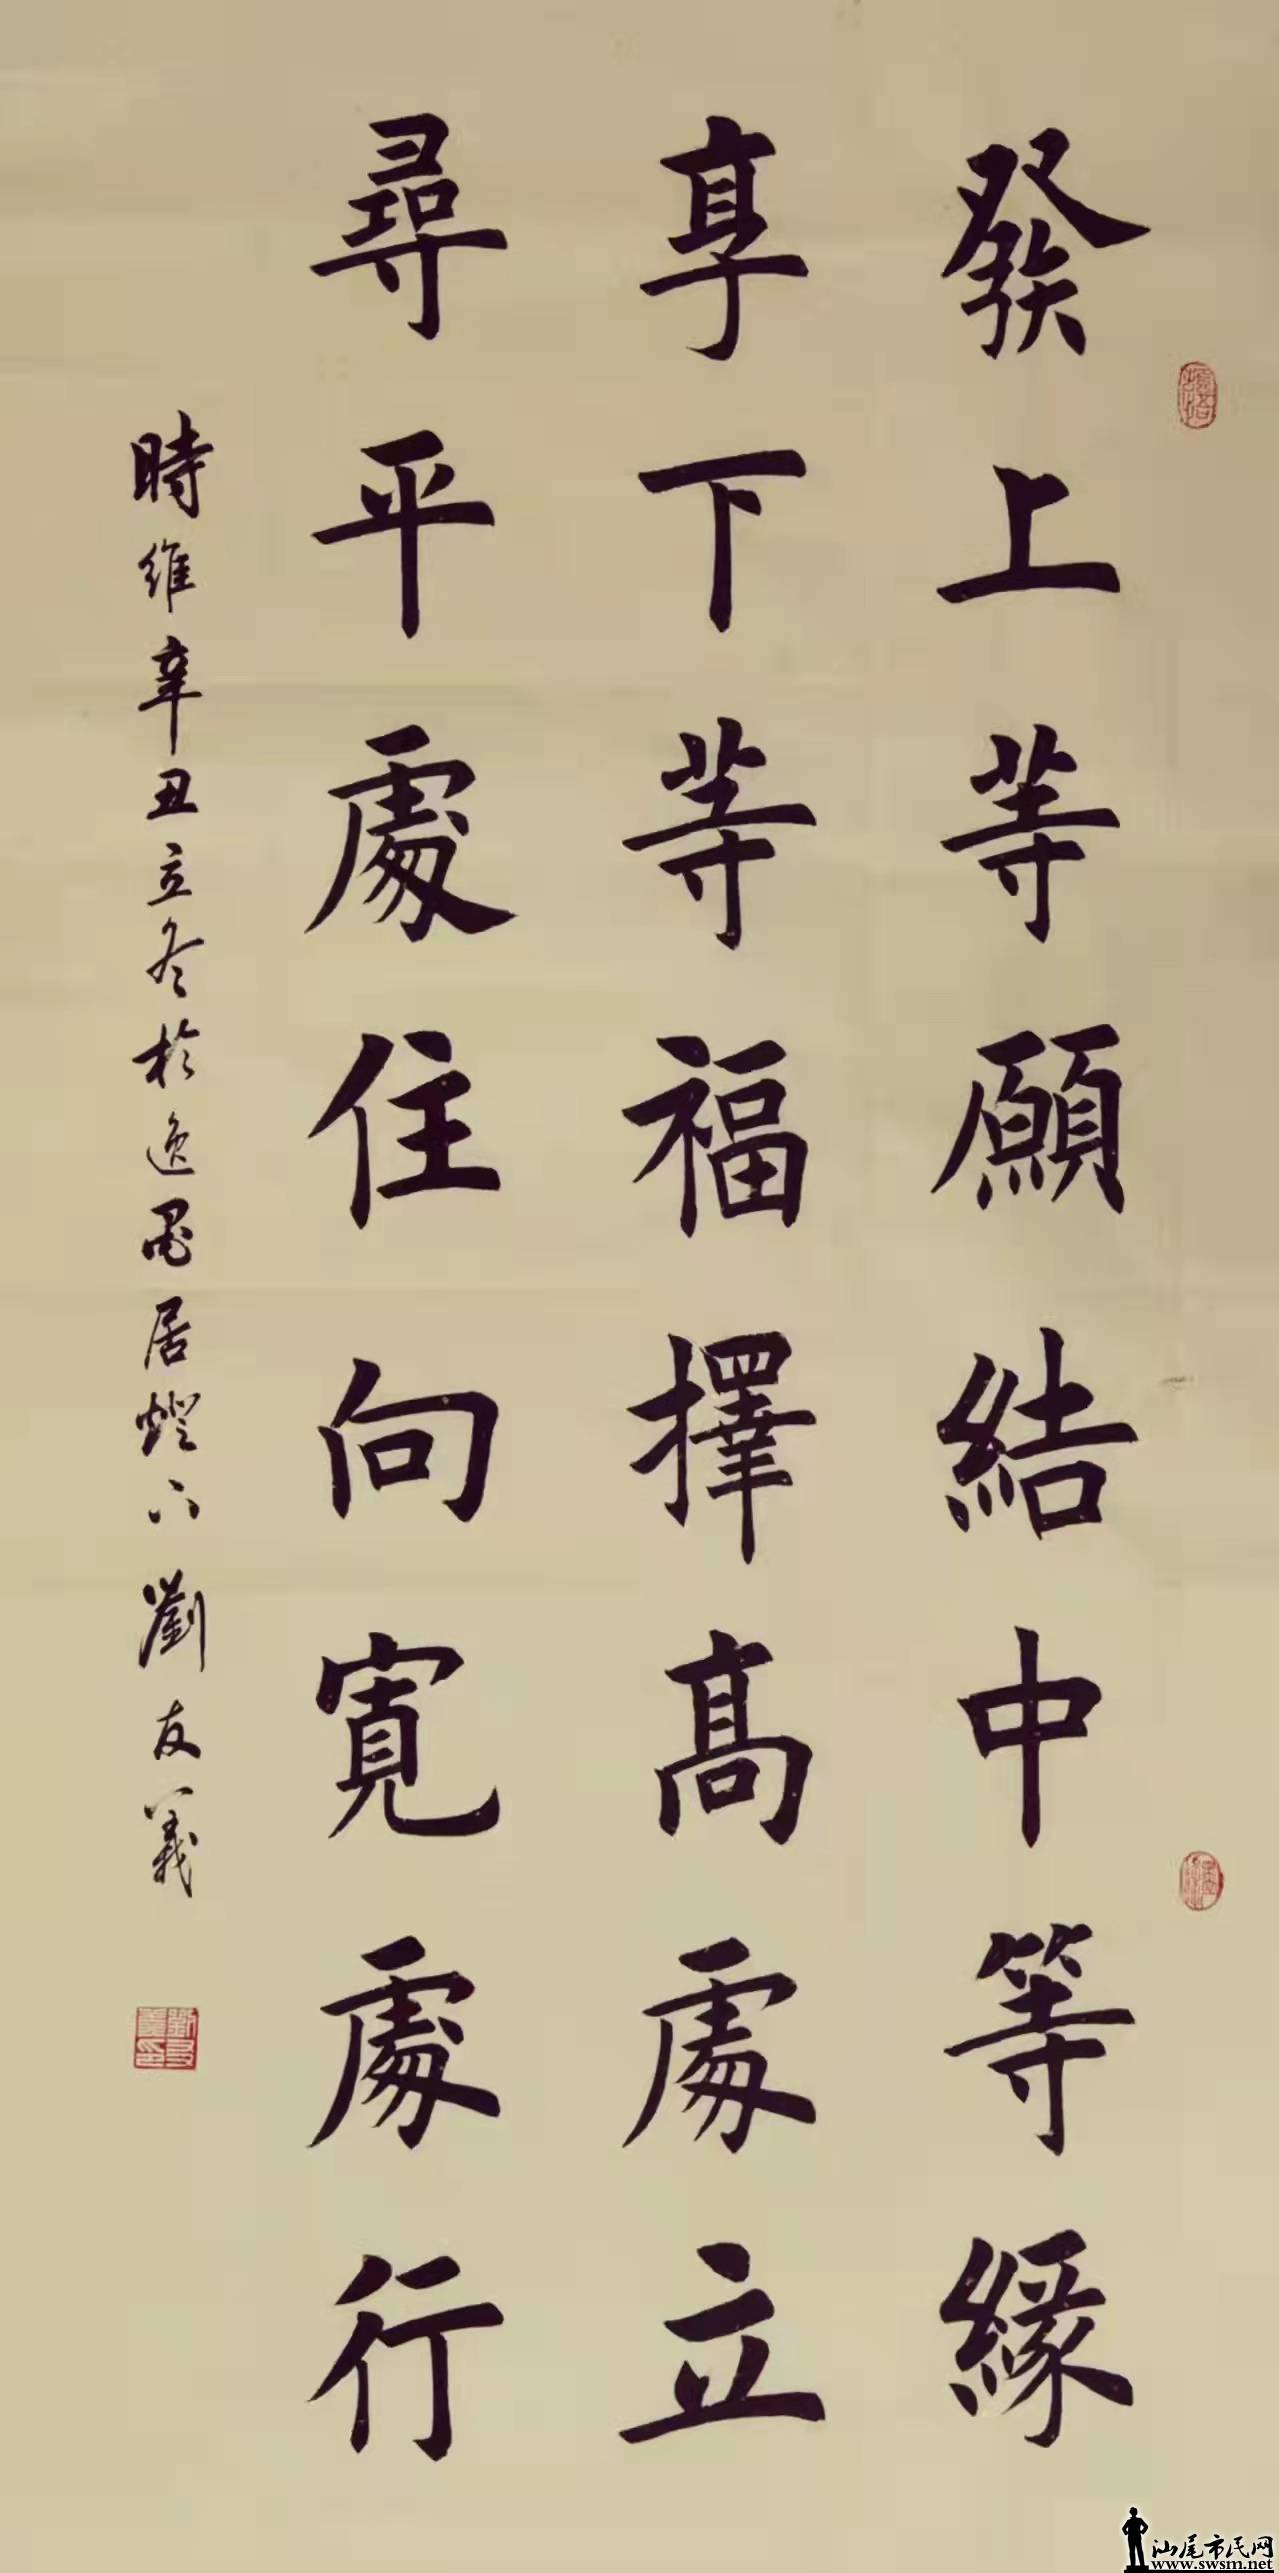 發上等願結中等緣
享下等福擇高處立
尋平處住向寬處行
時維辛丑立冬於逸墨居燈下劉友義
劉友義印
汕尾市民网
www.swsm.net